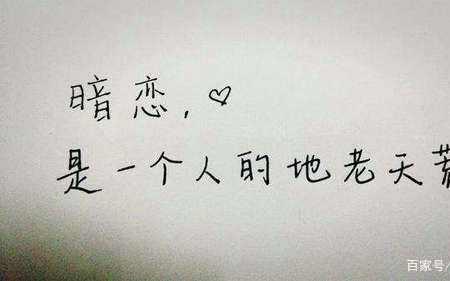 暗恋,♡
是一个人的地老天荒
百家号/